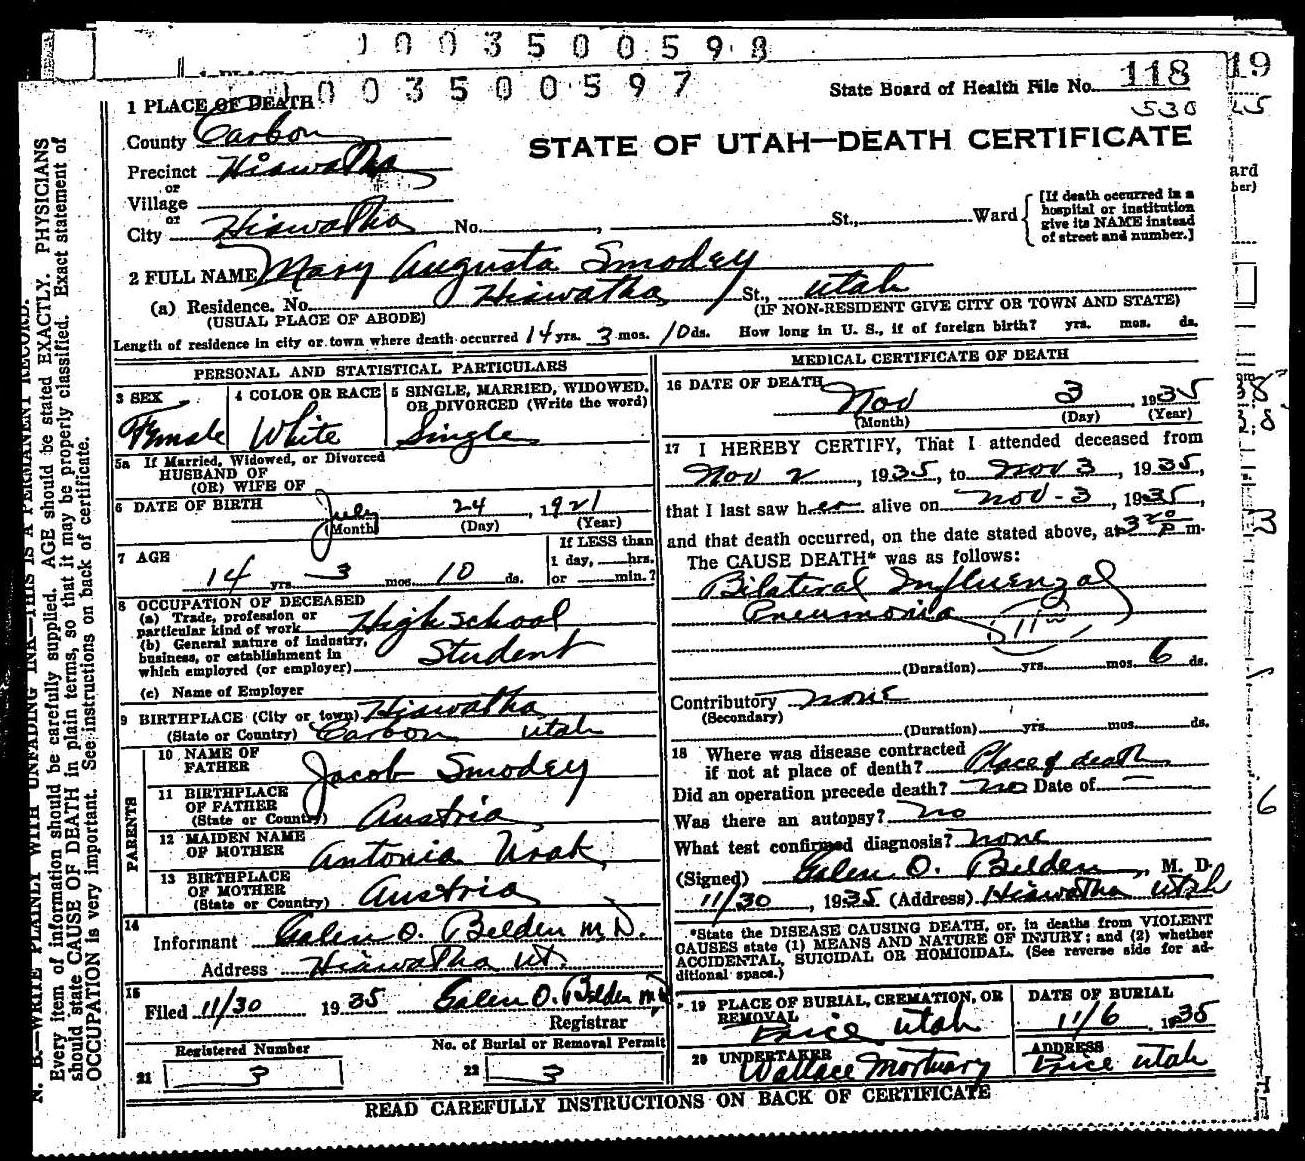 1003500598
1003500597
19
State Board of Health File No. 118
530
1 PLACE OF DEATH
County Carbon
STATE OF UTAH—DEATH CERTIFICATE
Precinct Hiawatha
or
Village
or
City Hiawatha No. , St., Ward
[If death occurred in a
hospital or institution
give its NAME instead
of street and number.]
2 FULL NAME Mary Augusta Smodey
(a) Residence. No. Hiawatha St., Utah
(USUAL PLACE OF ABODE) (IF NON-RESIDENT GIVE CITY OR TOWN AND STATE)
Length of residence in city or town where death occurred 14 yrs. 3 mos. 10 ds. How long in U. S., if of foreign birth? yrs. mos. ds.
PERSONAL AND STATISTICAL PARTICULARS
3 SEX Female
4 COLOR OR RACE White
5 SINGLE, MARRIED, WIDOWED,
OR DIVORCED (Write the word)
Single
5a If Married, Widowed, or Divorced
HUSBAND OF
(OR) WIFE OF
6 DATE OF BIRTH July 24, 1921
(Month) (Day) (Year)
7 AGE 14 yrs. 3 mos. 10 ds.
If LESS than
1 day, hrs.
or min.?
8 OCCUPATION OF DECEASED
(a) Trade, profession or
particular kind of work High School
(b) General nature of industry,
business, or establishment in
which employed (or employer) Student
(c) Name of Employer
9 BIRTHPLACE (City or town) Hiawatha
(State or Country) Carbon Utah
PARENTS
10 NAME OF
FATHER Jacob Smodey
11 BIRTHPLACE
OF FATHER
(State or Country) Austria
12 MAIDEN NAME
OF MOTHER Antonia
13 BIRTHPLACE
OF MOTHER
(State or Country) Austria
14
Informant Galen O. Belden M.D.
Address Hiawatha Ut.
15
Filed 11/30 1935 Galen O. Belden M.D.
Registrar
Registered Number No. of Burial or Removal Permit
21 3 22 3
MEDICAL CERTIFICATE OF DEATH
16 DATE OF DEATH Nov 3, 1935
(Month) (Day) (Year)
17 I HEREBY CERTIFY, That I attended deceased from
Nov 2, 1935, to Nov 3, 1935,
that I last saw her alive on Nov-3, 1935,
and that death occurred, on the date stated above, at 3 20 P m.
The CAUSE DEATH* was as follows:
Bilateral Influenzal
Pneumonia
(Duration) yrs. mos. 6 ds.
Contributory none
(Secondary)
(Duration) yrs. mos. ds.
18 Where was disease contracted
if not at place of death? Place of death
Did an operation precede death? no Date of —
Was there an autopsy? no
What test confirmed diagnosis? none
(Signed) Galen O. Belden, M. D.
11/30, 1935 (Address) Hiawatha Utah
*State the DISEASE CAUSING DEATH, or, in deaths from VIOLENT
CAUSES state (1) MEANS AND NATURE OF INJURY; and (2) whether
ACCIDENTAL, SUICIDAL OR HOMICIDAL. (See reverse side for ad-
ditional space.)
19 PLACE OF BURIAL, CREMATION, OR
REMOVAL
Price Utah
DATE OF BURIAL
11/6, 1935
20 UNDERTAKER
Wallace Mortuary
ADDRESS
Price Utah
READ CAREFULLY INSTRUCTIONS ON BACK OF CERTIFICATE
N. B.—WRITE PLAINLY WITH UNFADING INK—THIS IS A PERMANENT RECORD.
Every item of information should be carefully supplied. AGE should be stated EXACTLY. PHYSICIANS
should state CAUSE OF DEATH in plain terms, so that it may be properly classified. Exact statement of
OCCUPATION is very important. See instructions on back of certificate.